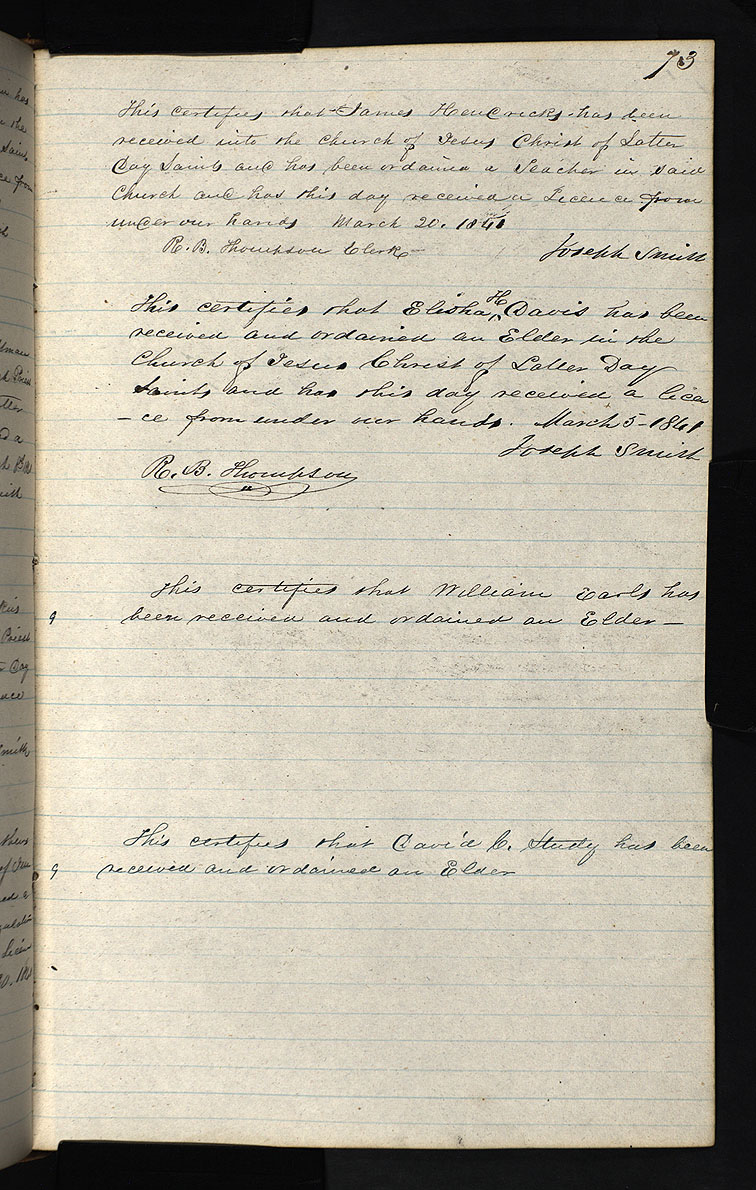 73
This certifies that James Hendricks has been
received into the church of Jesus Christ of Latter
Day Saints and has been ordained a Teacher in said
Church and has this day received a Licence from
under our hands March 20. 1841
R. B. Thompson Clerk Joseph Smith
This certifies that Elisha H Davis has been
received and ordained an Elder in the
Church of Jesus Christ of Latter Day
Saints and has this day received a licen
-ce from under our hands. March 5-1841
Joseph Smith
R. B. Thompson
This certifies that William Earls has
been received and ordained an Elder—
This certifies that David C. Study has been
received and ordained an Elder